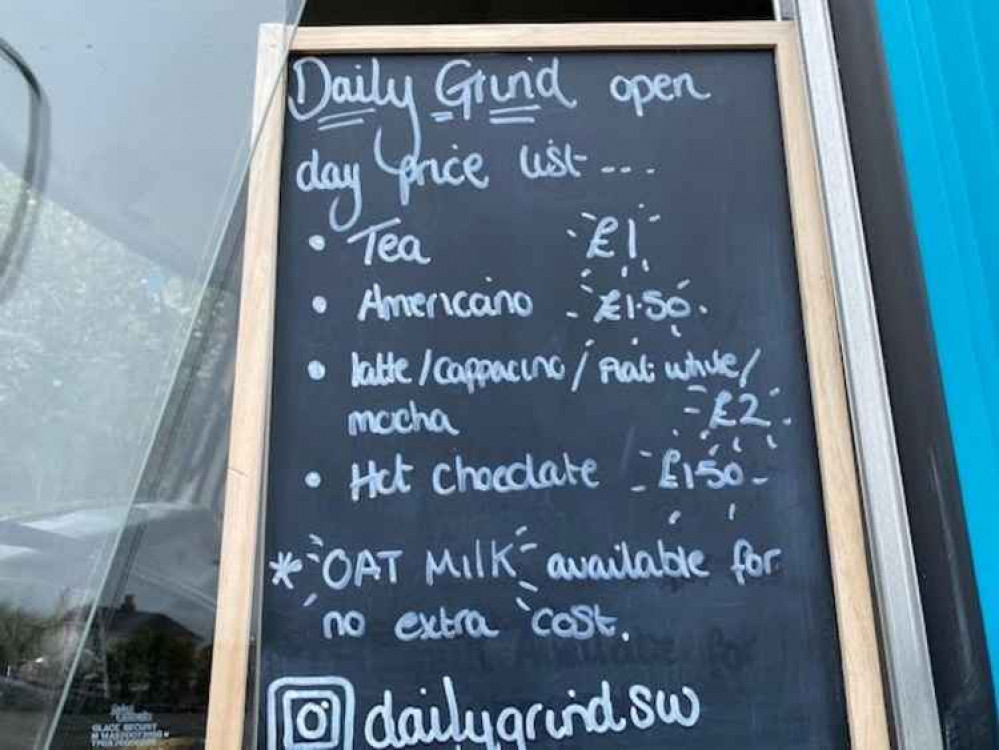 Daily Grind open
day price list ---
• Tea £1
• Americano £1.50.
• latte/cappacino/flat white/
mocha £2
• Hot chocolate £1.50
* OAT MILK available for
no extra cost.
dailygrindsw